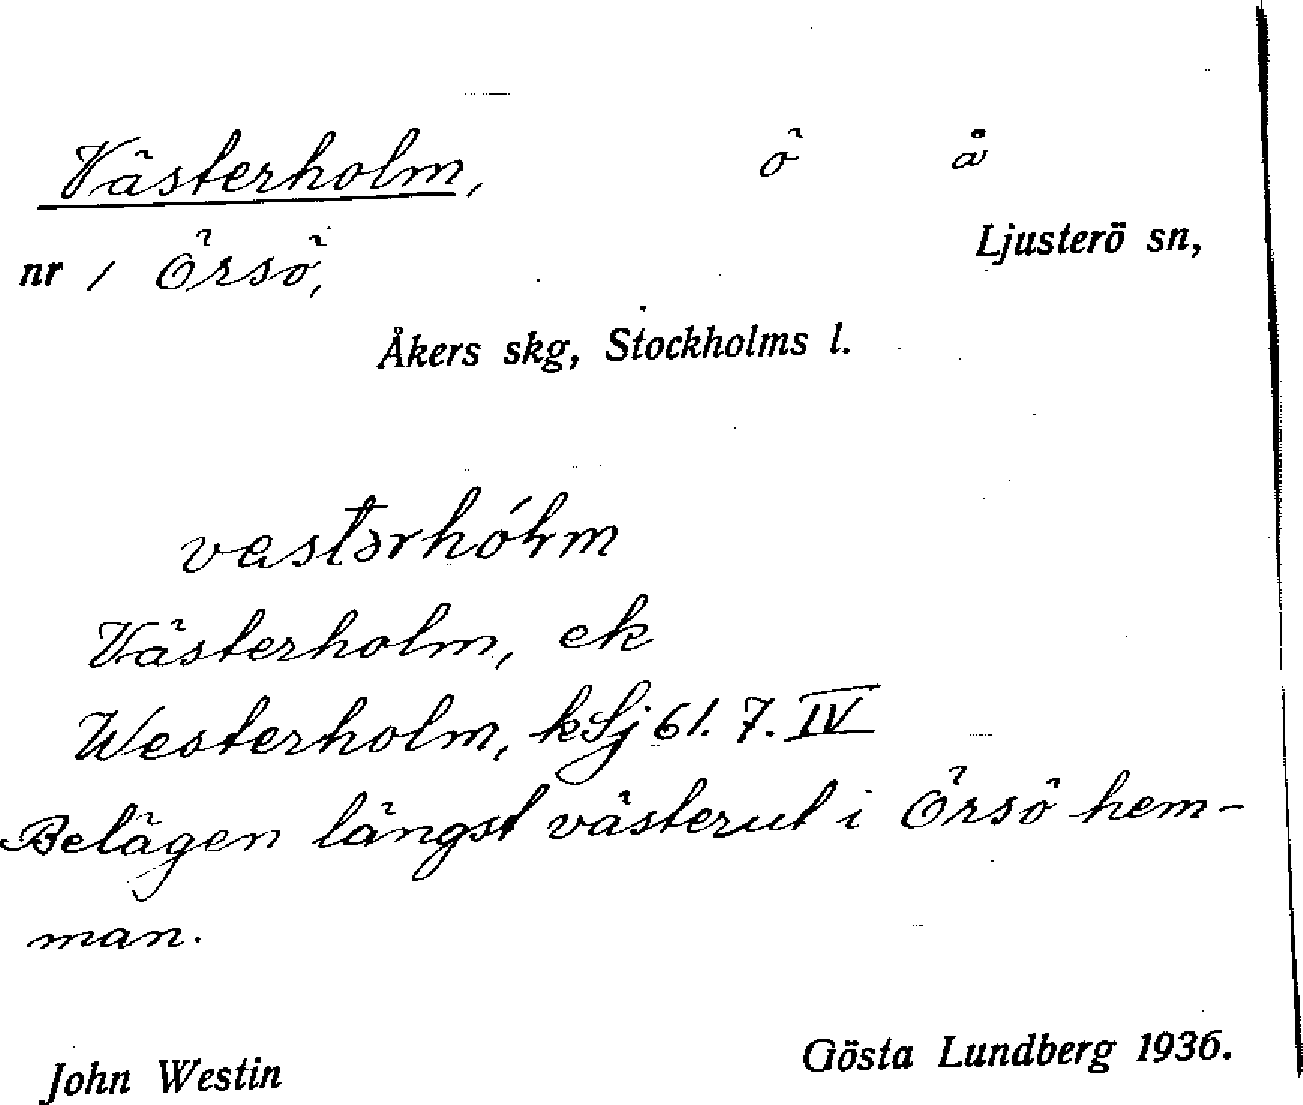 Västerholm, ö å
nr 1 Örsö, Ljusterö sn,
Åkers skg, Stockholms l.
Västerholm, ek
Westerholm, k Lj 61. 7. IV
Belägen längst västerut i Örsö hem-
man.
John Westin Gösta Lundberg 1936.